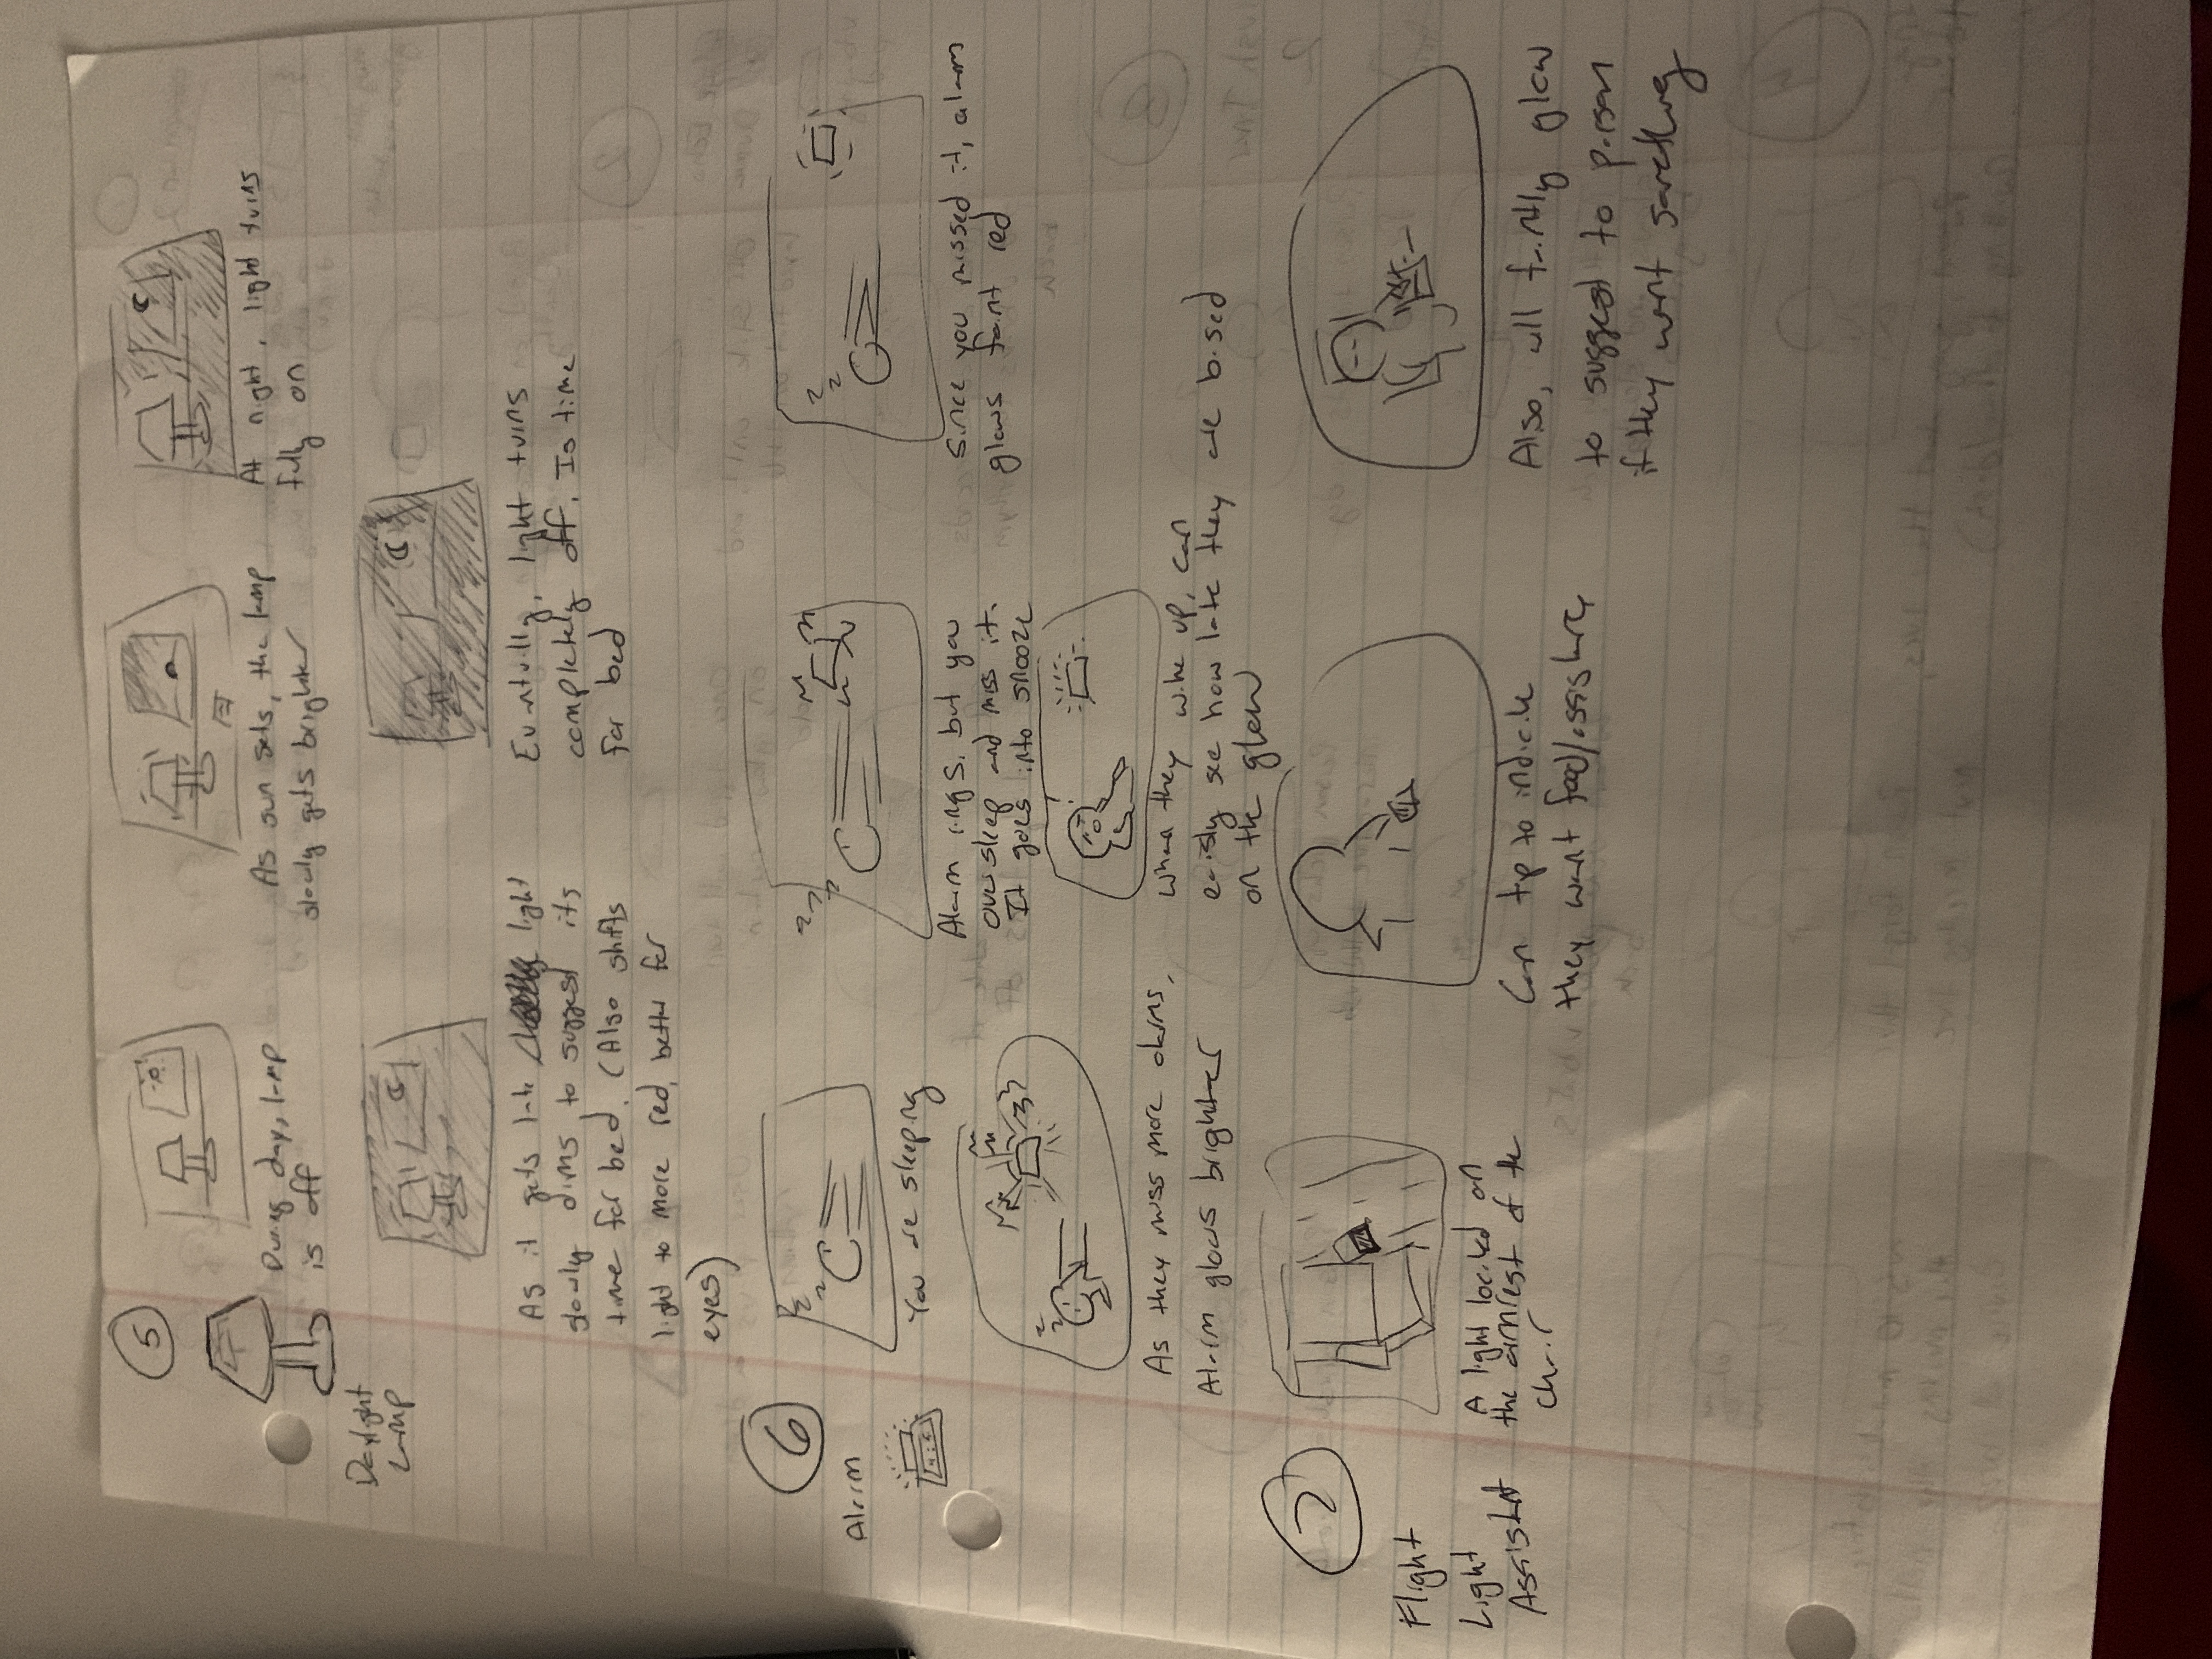 5
Daylight
Lamp
During day, lamp
is off
As sun sets, the lamp
slowly gets brighter
At night, light turns
fully on
As it gets late light
slowly dims to suggest its
time for bed. (Also shifts
light to more red, better for
eyes)
Eventually, light turns
completely off. Is time
for bed
6
Alarm
z
z
You are sleeping
z
z
z
Alarm rings, but you
oversleep and miss it.
It goes into snooze
z
z
Since you missed it, alarm
glows faint red
z
z
As they miss more alarms,
Alarm glows brighter
When they wake up, can
easily see how late they are based
on the glow
7
Flight
Light
Assistant
A light located on
the armrest of the
chair
Can tap to indicate
they want food/assistance
Also, will faintly glow
to suggest to person
if they want something